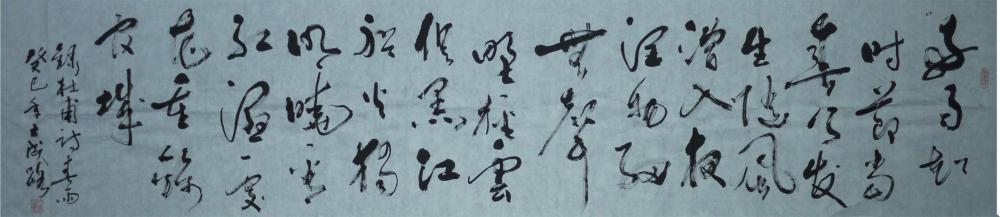 好雨知
时節當
春乃发
生隨風
潛入夜
润物细
無聲
野徑雲
俱黑江
船火独
明曉看
红濕處
花重锦
官城
錄杜甫詩春雨
癸巳年